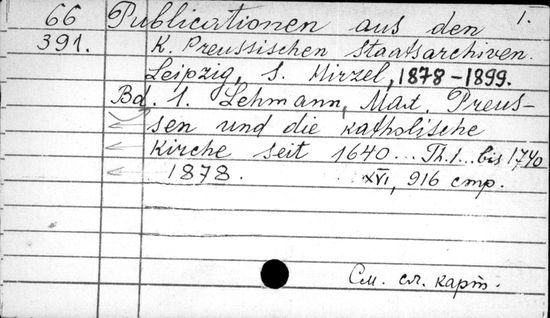 66 Publicationen aus den 1.
391. K. Preussischen Staatsarchiven.
Leipzig, S. Hirzel, 1878-1899.
Bd. 1. Lehmann, Max. Preus-
sen und die katholische
Kirche seit 1640... Th.1... bis 1740
1878. XVI, 916 стр.
См. сл. карт.